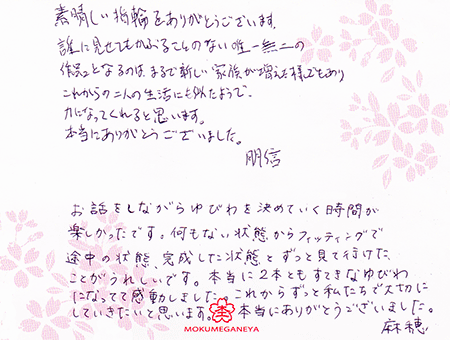 素晴しい指輪をありがとうございます。
誰に見せてもかぶることのない唯一無二の
作品となるのは、まるで新しい家族が増えた様でもあり
これからの二人の生活にも似たようで、
力になってくれると思います。
本当にありがとうございました。
明信
お話をしながらゆびわを決めていく時間が
楽しかったです。何もない状態からフィッティングで
途中の状態、完成した状態とずっと見て行けた
ことがうれしいです。本当に2本ともすてきなゆびわ
になってて感動しました。これからずっと私たちで大切に
していきたいと思います。本当にありがとうございました。
麻穂
MOKUMEGANEYA